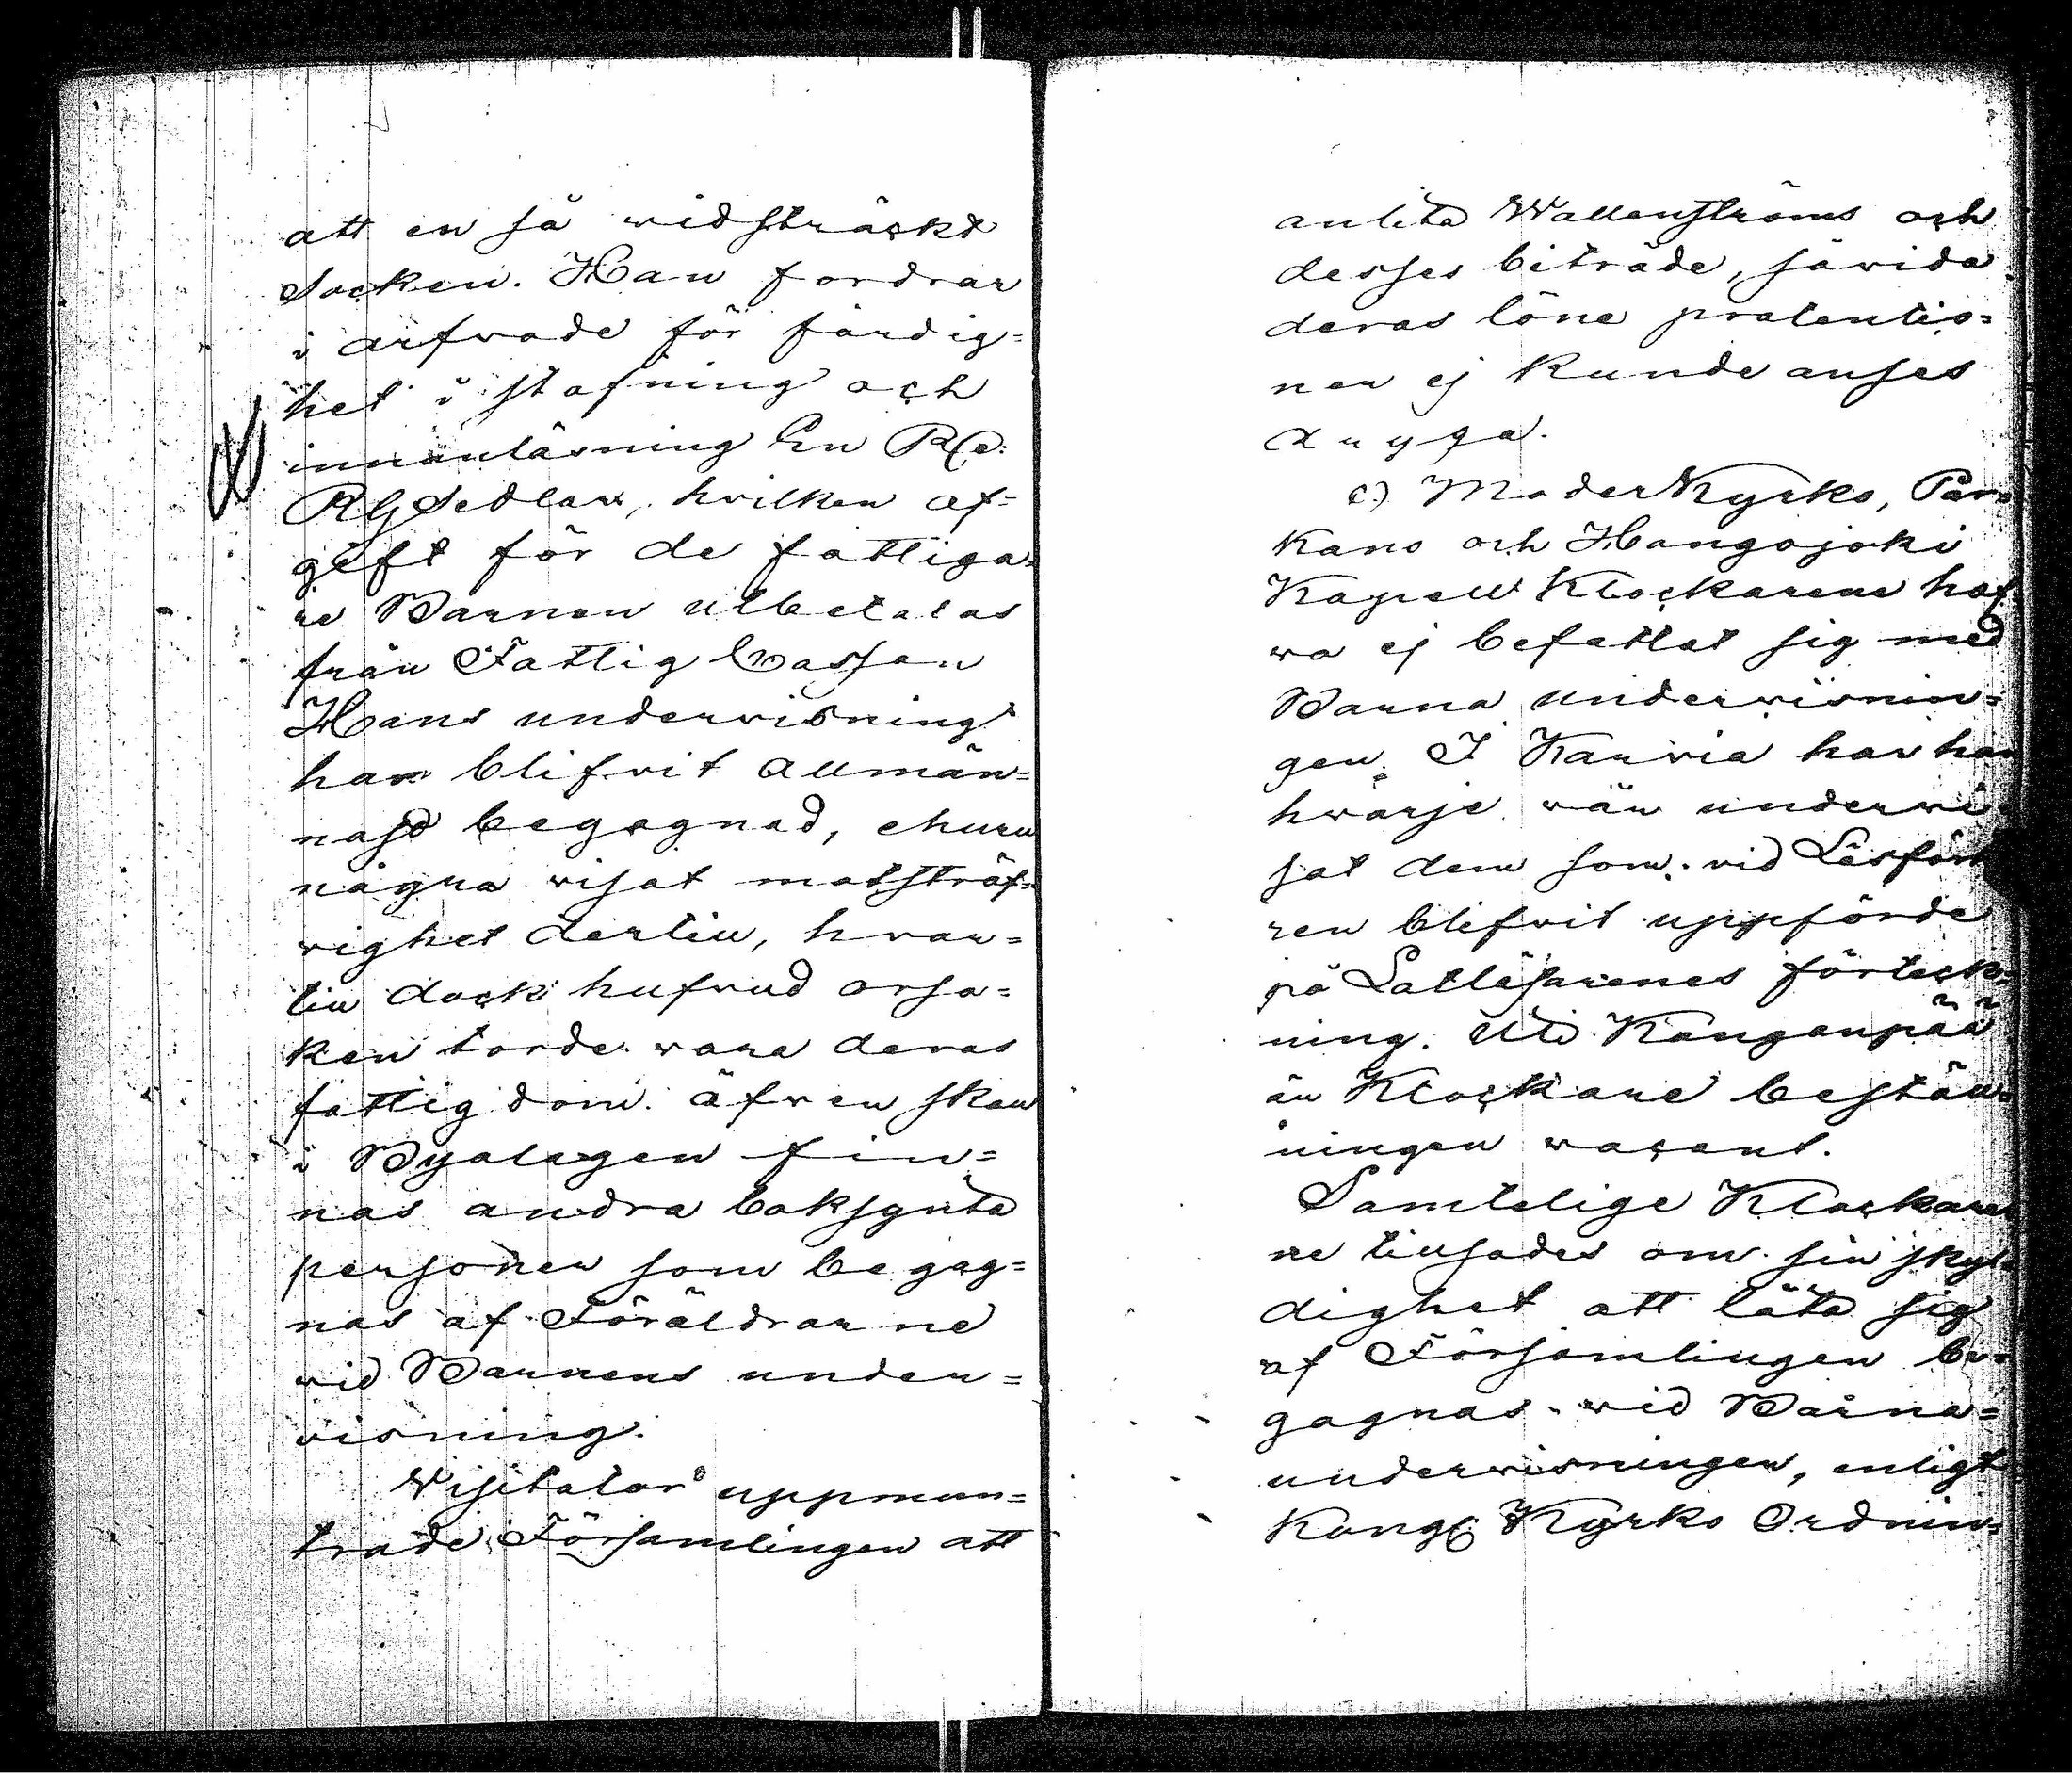 att en så widsträckt
Socken. Han fordrar
i arfvode för färdig=
het i stafning och
innanläsning En R
RGSedlar, hvilken af=
gift för de fattiga=
re Barnen utbetalas
från Fattig Cassan
Hans underwisning
har blifvit allmän=
nast begagnad, ehuru
några visat motsträf=
wighet dertill, hvar=
till dock hufvud orsa=
ken torde wara deras
fattigdom. äfwen skall
i Byalagen fin=
nas andra boksynta
personer som begag=
nas af Föräldrarne
wid Barnens under=
visning.
Visitator uppmun=
trade Församlingen att
anlita Wallenströms och
desses biträde, såvida
deras löne pratentio=
ner ej kunde anses
dryga.
c.) ModerKyrko, Par=
kano och Hongojoki
Kapell Klockarene haf
va ej befattat sig med
Barna underwisnin=
gen. I Karvia har han
hwarje wår underwi
sat dem som vid Läsför
ren blifvit uppförde
på Lattläsarenes förteck=
ning. Uti Kangaupää
är Klockare beställ=
ningen vacant.
Samtelige Klockare
ne tillsades om sin skyl
dighet att låta sig
af Församlingen be=
gagnas wid Barna=
underwisningen, enligt
Kongl Kyrko Ordnin=